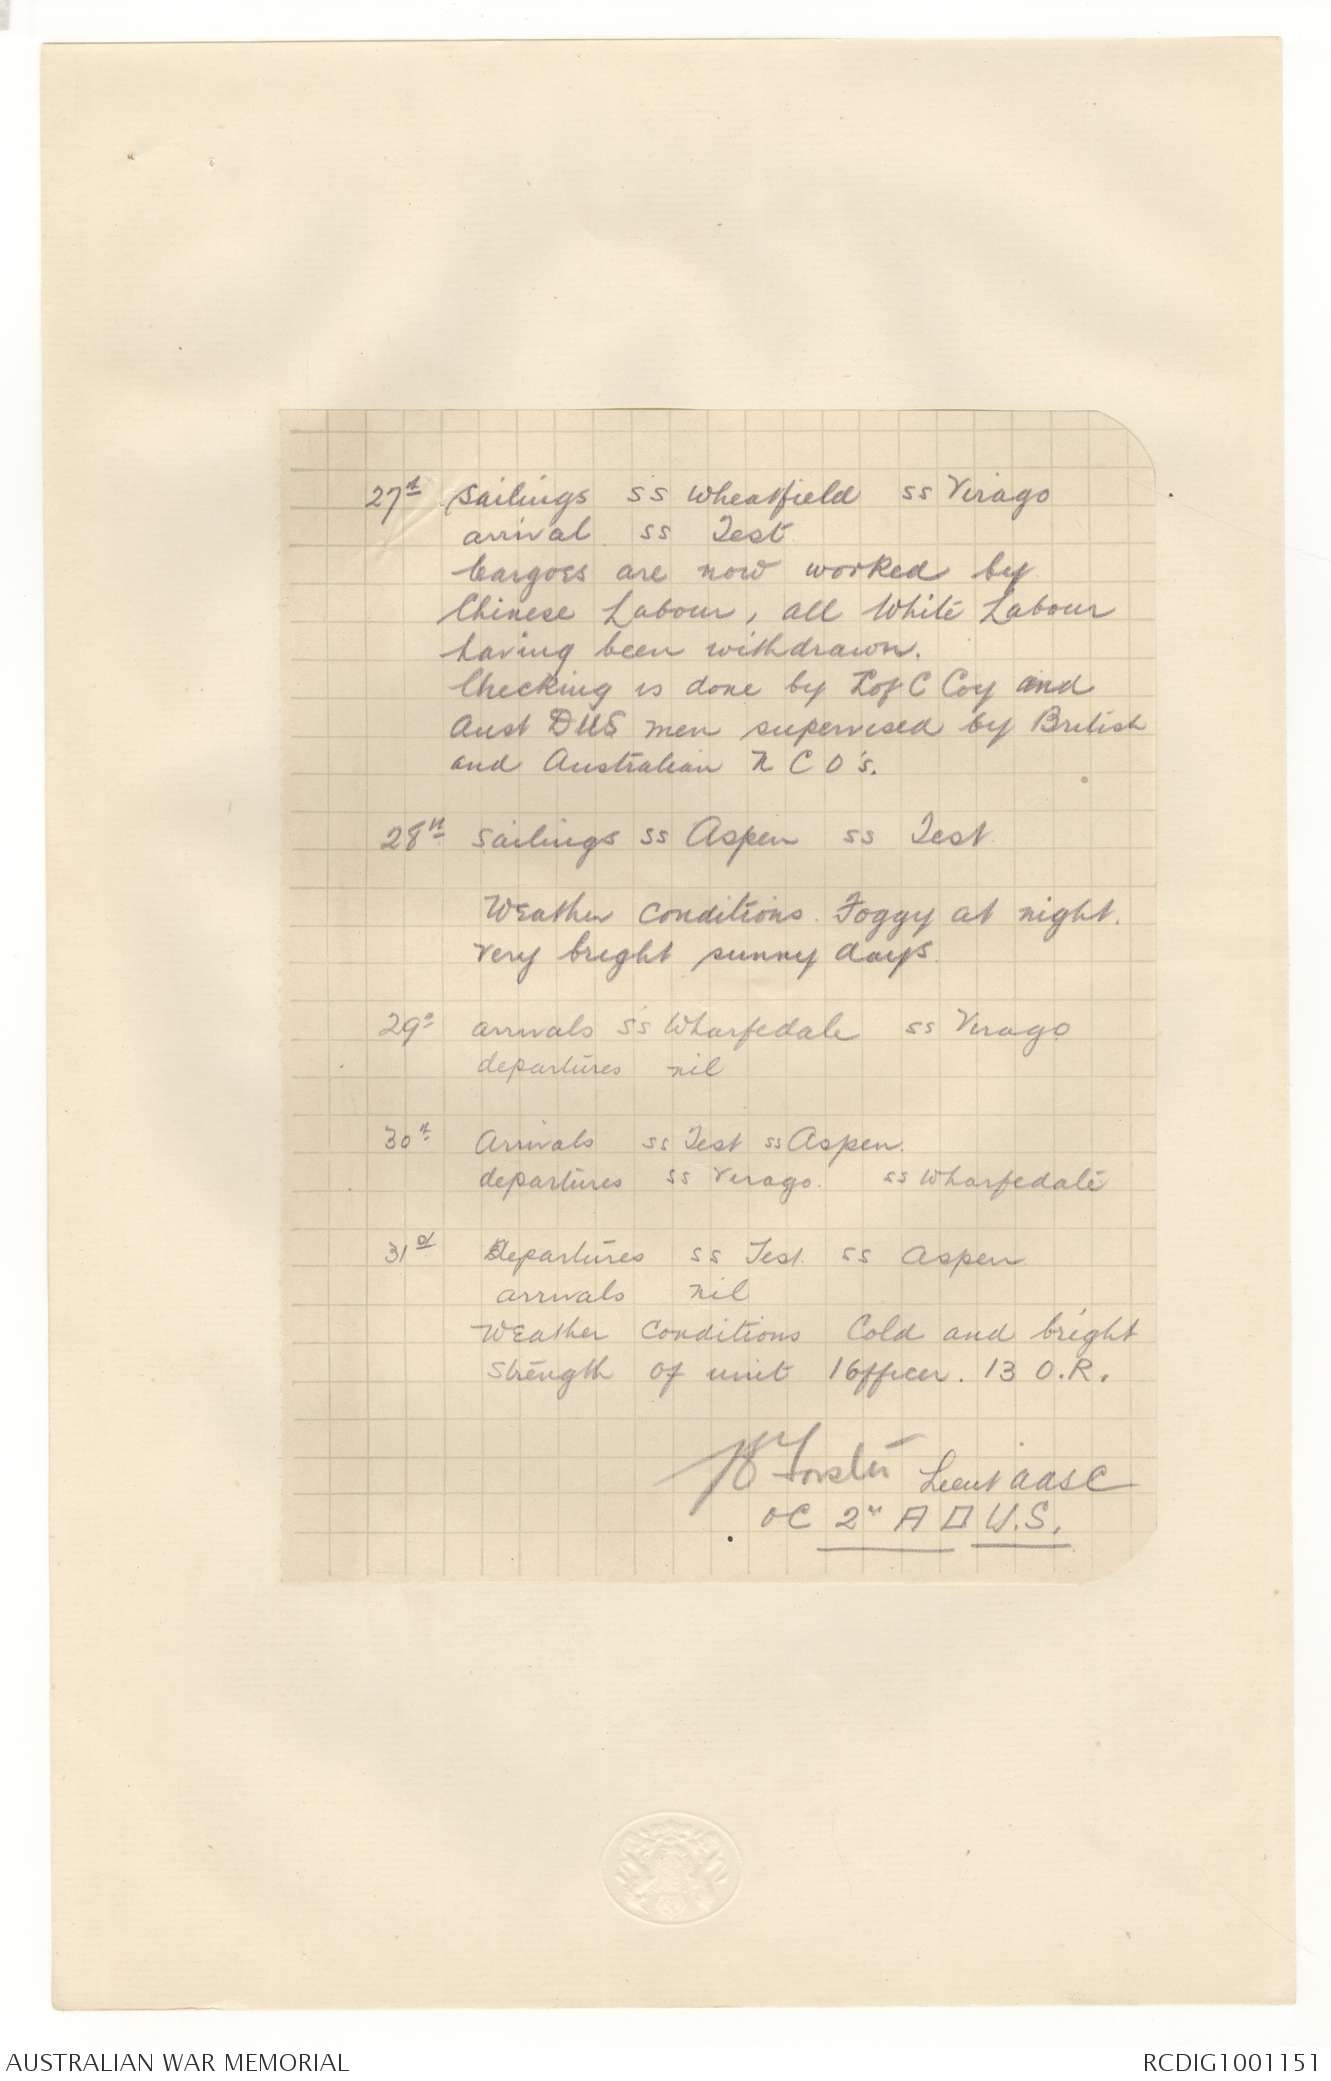 27th Sailings SS Wheatfield SS Virago
arrival SS Test
Cargoes are now worked by
Chinese Labour, all White Labour
having been withdrawn.
Checking is done by L of C Coy and
Aust DUS men supervised by British
and Australian N C O's.
28th Sailings SS Aspen SS Test
Weather conditions. Foggy at night.
Very bright sunny days.
29th arrivals SS Wharfedale SS Virago
departures nil
30th Arrivals SS Test SS Aspen.
departures SS Virago. SS Wharfedale
31st Departures SS Test. SS Aspen
arrivals nil
Weather Conditions Cold and bright
Strength of unit 1 Officer. 13 O.R.
Forster Lieut AASC
OC 2nd A D U.S.
AUSTRALIAN WAR MEMORIAL
RCDIG1001151